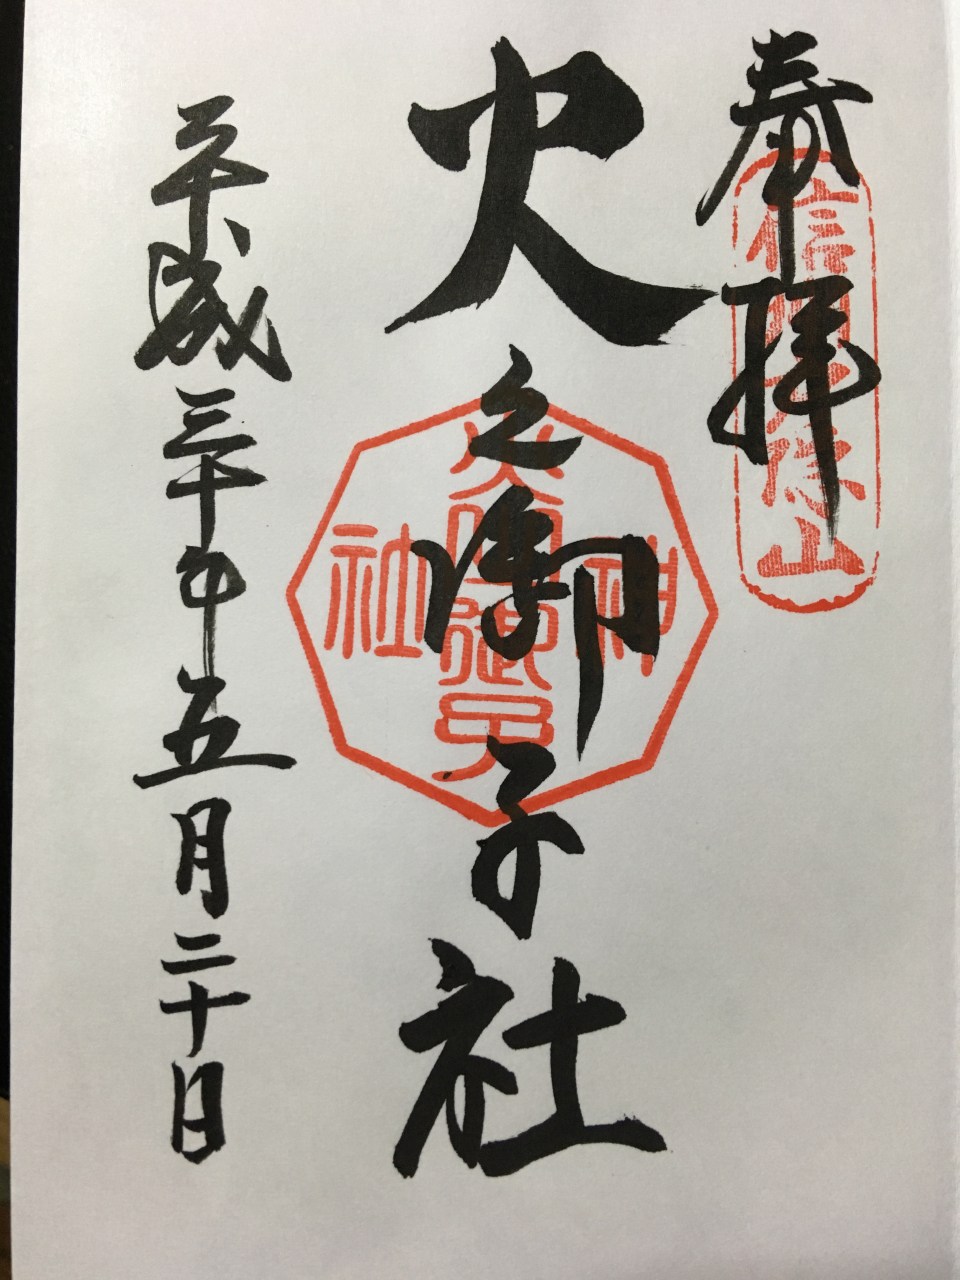 奉拝
信州戸隠山
火之御子社
火之御子神社
平成三十年五月二十日